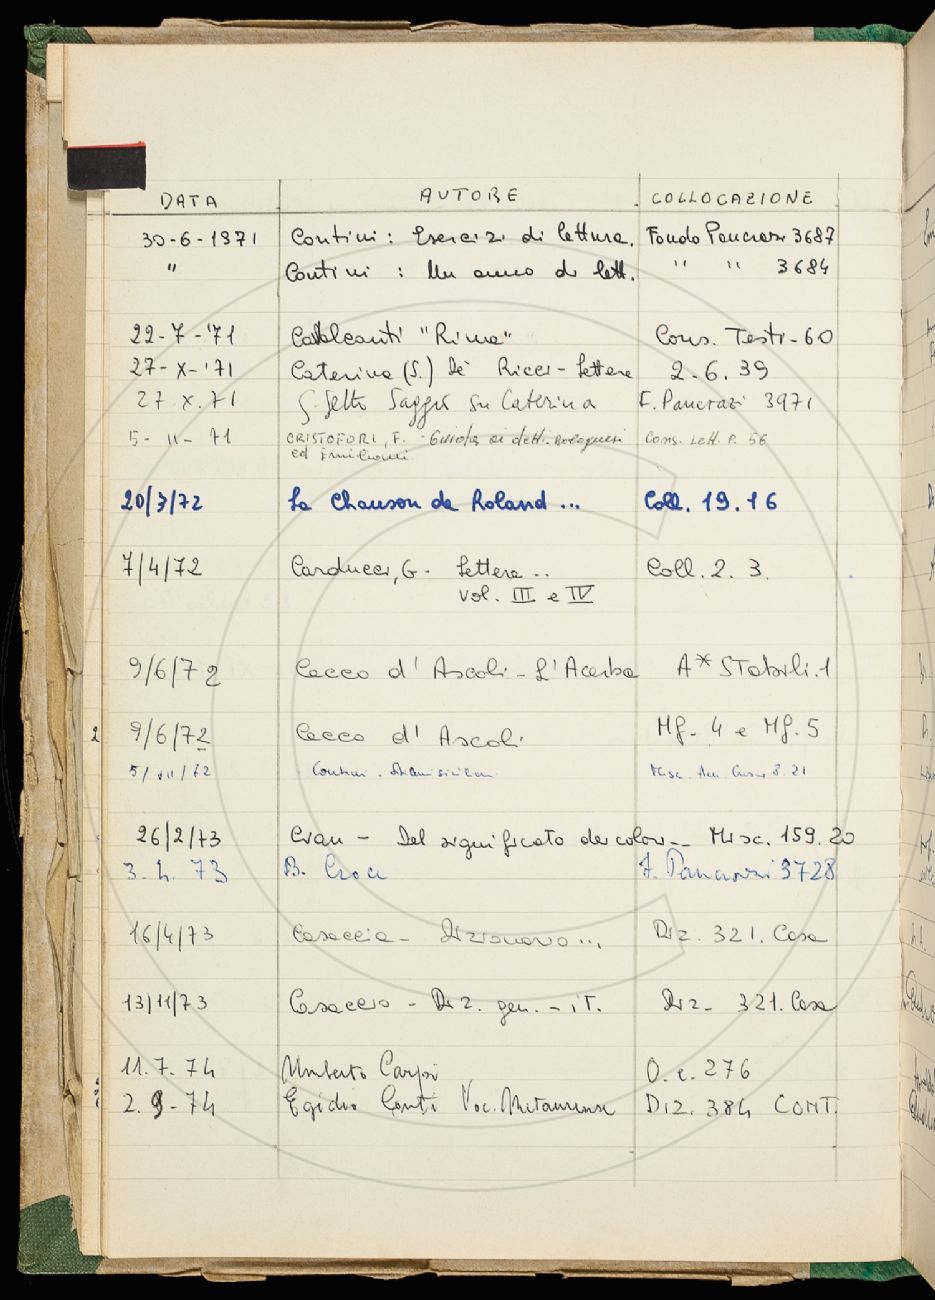 DATA AUTORE COLLOCAZIONE
30-6-1971 Contini: Esercizi di lettura. Fondo Pancrazi 3687
" Contini: Un anno di lett. " " 3684
22-7-'71 Cavalcanti "Rime" Cons. Testi-60
27-X-'71 Caterina (S.) De' Ricci - Lettere 2.6.39
27.X.71 G. Getto Saggio su Caterina F. Pancrazi 3971
5-11-71 CRISTOFORI, F. - Guida ai detti bolognesi Cons. Lett. P. 56
ed emiliani
20/3/72 La Chanson de Roland... Coll. 19.16
7/4/72 Carducci, G. Lettere .. Coll. 2. 3.
vol. III e IV
9/6/72 Cecco d'Ascoli - L'Acerba A* Stabili.1
2 9/6/72 Cecco d'Ascoli Mf. 4 e Mf. 5
5/VII/72 Contini . Misc. 8.21
26/2/73 Cian - Del significato dei colori.. Misc. 159.20
3.4.73 B. Croce F. Pancrazi 3728
16/4/73 Casaccia - Dizionario... Diz. 321. Casa
13/11/73 Casaccia - Diz. gen. - it. Diz- 321. Casa
11.7.74 Umberto Carpi O.c.276
2.9-74 Egidio Conti Voc. Metaurense Diz. 384 CONT.